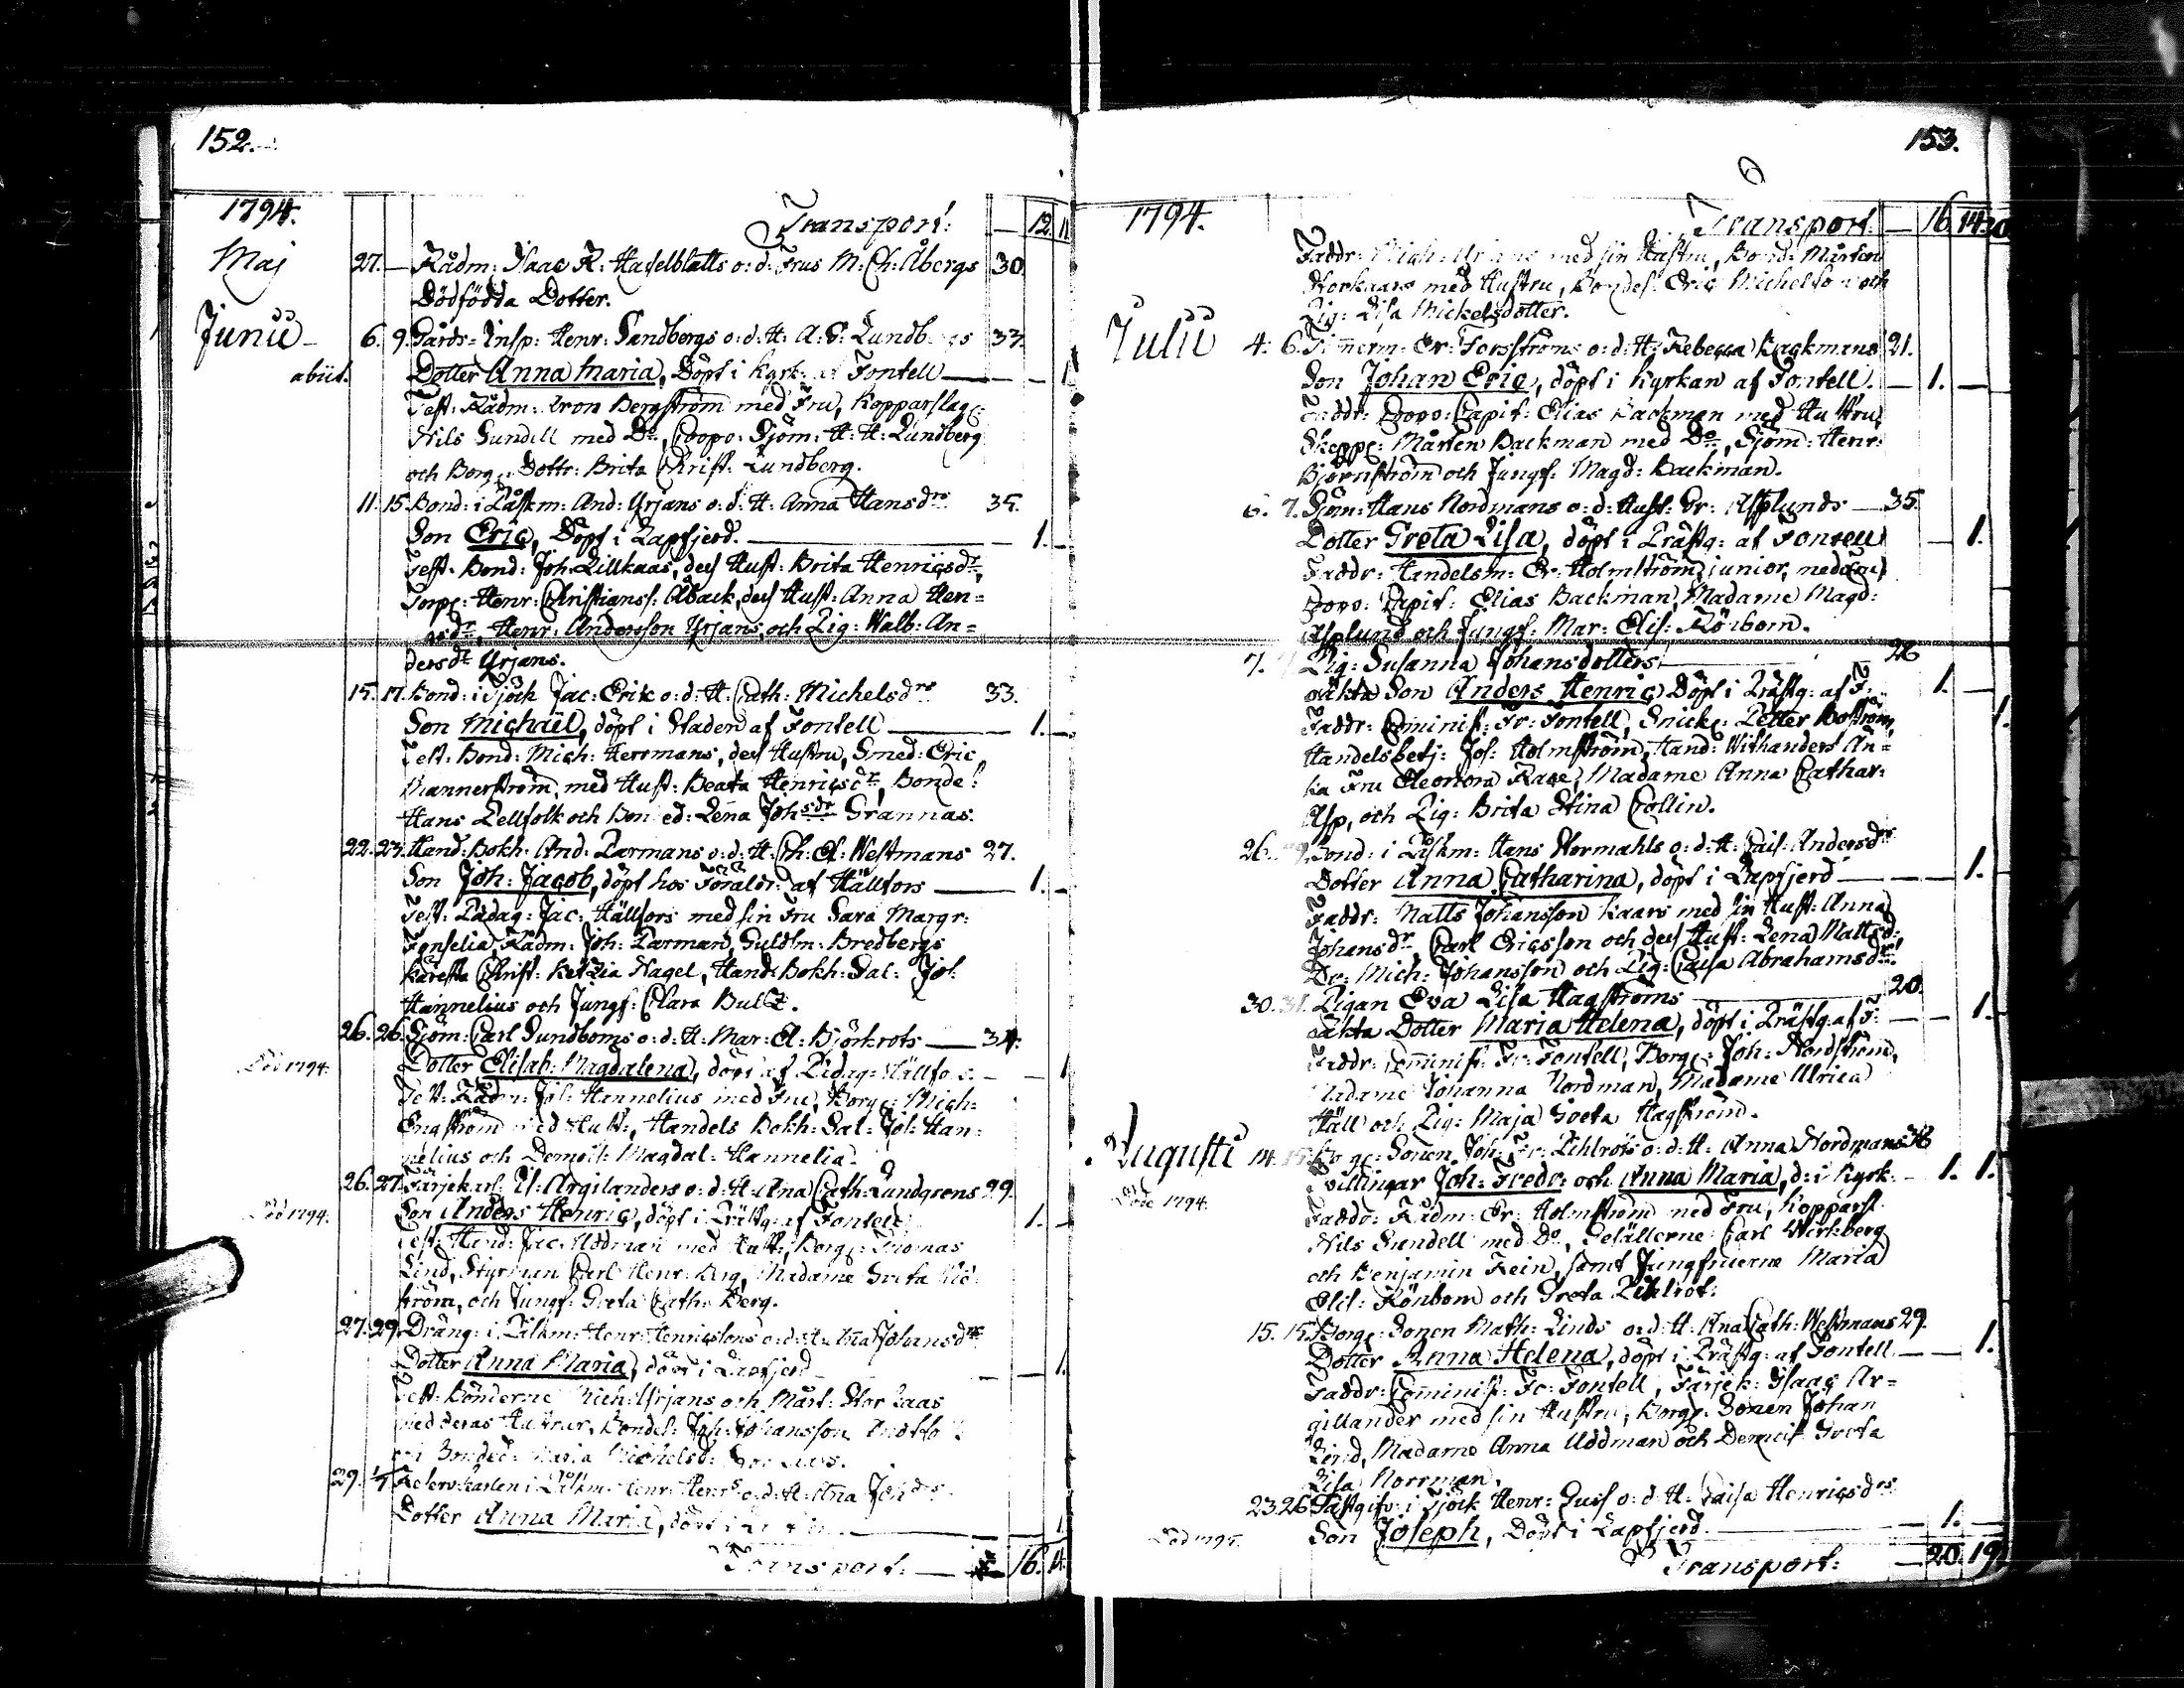 152.
1794. Transport: — 12. 11
Maj 27. — Rådm: Isaac R: Haselblatts o: d: Frus M: Ch: Åbergs 30.
Dödfödda Dotter.
Junii 6. 9. Gårds-Insp: Henr: Sandbergs o: d: H: A: S: 33.
abiit. Dotter Anna Maria, Döpt i Kyrk: af Fontell — 1
Test: Rådm: Aron Bergström med Fru, Kopparslag:
Nils Sundell med Do, Coopv: Sjöm: H: H: Lundberg
och Borg: Dottr: Brita Christ: Lundberg.
11. 15. Bond: i Låhm: And: Yrjans o: d: H: Anna Hansdrs 35.
Son Eric, Döpt i Lapfjerd. — 1.
Test: Bond: Joh: Lillkaas, dess Hust: Brita Henricsdr,
Torp: Henr: Christianss: Åback, dess Hust: Anna Hen=
Henr: Andersson Yrjans, och Pig: Walb: An=
dersdr Yrjans.
15. 17. Bond: i Tjöck Jac: Erik o: d: H: Cath: Michelsdrs 33.
Son Michaël, döpt i Staden af Fontell — 1.
Test: Bond: Mich: Herrmans, dess Hustru, Smed: Eric
Mannerström, med Hust: Beata Henricsdr, Bonde:
Hans Lellfolk och Lena Johsdr Grannas.
22. 23. Hand: Bokh: And: Parmans o: d: H: Ch: El: Westmans 27.
Son Joh: Jacob, döpt hos Föräldr: af Hällfors — 1.
Test: Pædag: Jac: Hällfors med sin Fru Sara Margr:
Rådm: Joh: Parman, Guldsm: Bredbergs
Käresta Christ: Ketzia Nagel, Hand: Bokh: Sal: Joh:
Hannelius och Jungf: Clara Bultz.
26. 26. Sjöm: Carl Sundboms o: d: H: Mar: El: Björkrots — 34.
Död 1794. Dotter Elisab: Magdalena, döpt af Pædag: Hällfors — 1
Test: Rådm: Joh: Hannelius med Fru, Borg: Mich:
Engström med Hust:, Handels Bokh: Sal: Joh: Han=
nelius och Demois: Magdal: Hannelia.
26. 27. Färjekarl: Is: Argillanders o: d: H: Ana Cath: Lundgrens 29.
Död 1794. Son Anders Henric, döpt i Prästg: af Fontell 1.
Test: Hand: Jac: Uddman med Hust:, Borg: Thomas
Lind, Styrman Carl Henr: Berg, Madame Greta
ström, och Jungf: Greta Cath: Berg.
27. 29. Dräng: i Låhm: Henr: Henricsons o: d: H: Johansdrs
Dotter Anna Maria, döpt i Lapfjerd — 1.
Test: Bönderne Mich: Yrjans och Mårt: Storkaas
med deras Hustrur, Bondes: Joh: Johansson
Bonded: Maria Michelsd:
29. 1/7 i Låhm: Henr: Henrs o: d: H: Ana Johdrs
Dotter Anna Maria, döpt — 1.
Transport: — 16. 14.
153.
1794. Transport — 16. 14.
Faddr: Mich: Yrjans med sin Hustru, Bond: Mårten
Storkaars med Hustru, Bondes: Eric Michelson och
Pig: Lisa Mickelsdotter.
Julii 4. 6. Timerm: Er: Forsströms o: d: H: Rebecca Backmans 21.
Son Johan Eric, döpt i Kyrkan af Fontell. — 1. —
Faddr: Coopv: Capit: Elias Backman med Hustru,
Skepp: Mårten Backman med Do, Sjöm: Henr:
Björnström och Jungf: Magd: Backman.
6. 7. Sjöm: Hans Nordmans o: d: Hust: Br: Asplunds — 35.
Dotter Greta Lisa, döpt i Prästg: af Fontell — 1.
Faddr: Handelsm: Er: Holmström junior, med
Coopv: Capit: Elias Backman, Madame Magd:
Asplund och Jungf: Mar: Elis: Rönbom.
7. Pig: Susanna Johansdotters — 26
oäkta Son Anders Henric, Döpt i Prästg: af F: 1. —
Faddr: Cominist: Fr: Fontell, Snick: Petter Boström, 1.
Handelsbetj: Joh: Holmström, Hand: Withanders än=
ka Fru Eleonora Race, Madame Anna Cathar:
Asp, och Pig: Brita Stina Collin.
26. Bond: i Låhm: Hans Stormahls o: d: H: Cais: Andersdrs
Dotter Anna Catharina, döpt i Lapfjerd — 1.
Faddr: Matts Johansson Kaars med sin Hust: Anna
Johansdr, Carl Ericsson och dess Hust: Lena Mattsd:
Dr: Mich: Johansson och Pig: Caisa Abrahamsdr
30. 31. Pigan Eva Lisa Hagströms — 20.
oäkta Dotter Maria Helena, döpt i Prästg: af F: — 1.
Faddr: Cominist: Fr: Fontell, Borg: Joh: Nordström,
Madame Johanna Nordman, Madame Ulrica
Häll och Pig: Maja Greta Hagström.
Augusti 14. 15. Borg: Sonen Joh: Fr: Pihlrots o: d: H: Anna Nordmans 36
Död 1794. Tvillingar Joh: Fredr: och Anna Maria, d: i Kyrk: — 1. 1.
Faddr: Rådm: Er: Holmström med Fru, Kopparsl:
Nils Sundell med Do, Gesällerne Carl Wirkberg
och Benjamin Rein, samt Jungfruerne Maria
Elis: Rönbom och Greta Pihlrot:
15. 15. Borg: Sonen Math: Linds o: d: H: Ana Cath: Westmans 29.
Dotter Anna Helena, döpt i Prästg: af Fontell — 1.
Faddr: Cominist: Fr: Fontell, Färjek: Isaac Ar=
gillander med sin Hustru, Borg: Sonen Johan
Lind, Madame Anna Uddman och Demois: Greta
Lisa Norrman.
23. 26. Gästgifv: i Tjöck Henr: o: d: H: Caisa Henricsdrs
Död 1795. Son Joseph, Döpt i Lapfjerd — 1. —
Transport: — 20. 19.